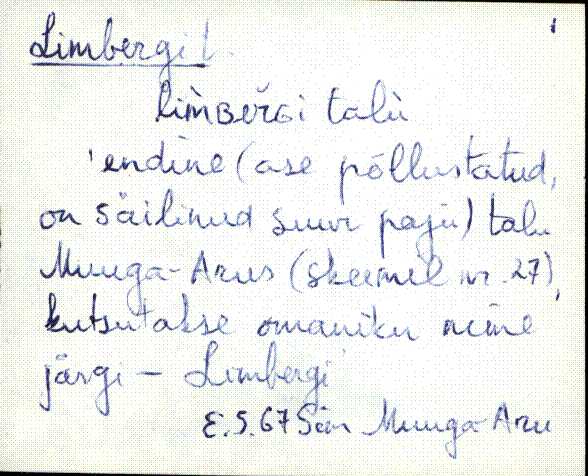 Limbergi t.
lìmʙᴇřɢi talù
'endine (ase põllustatud,
on säilinud suur paju) talu
Muuga-Arus (skeemil nr. 27),
kutsutakse omaniku nime
järgi – Limbergi
E.S. 67 Sim Muuga-Aru